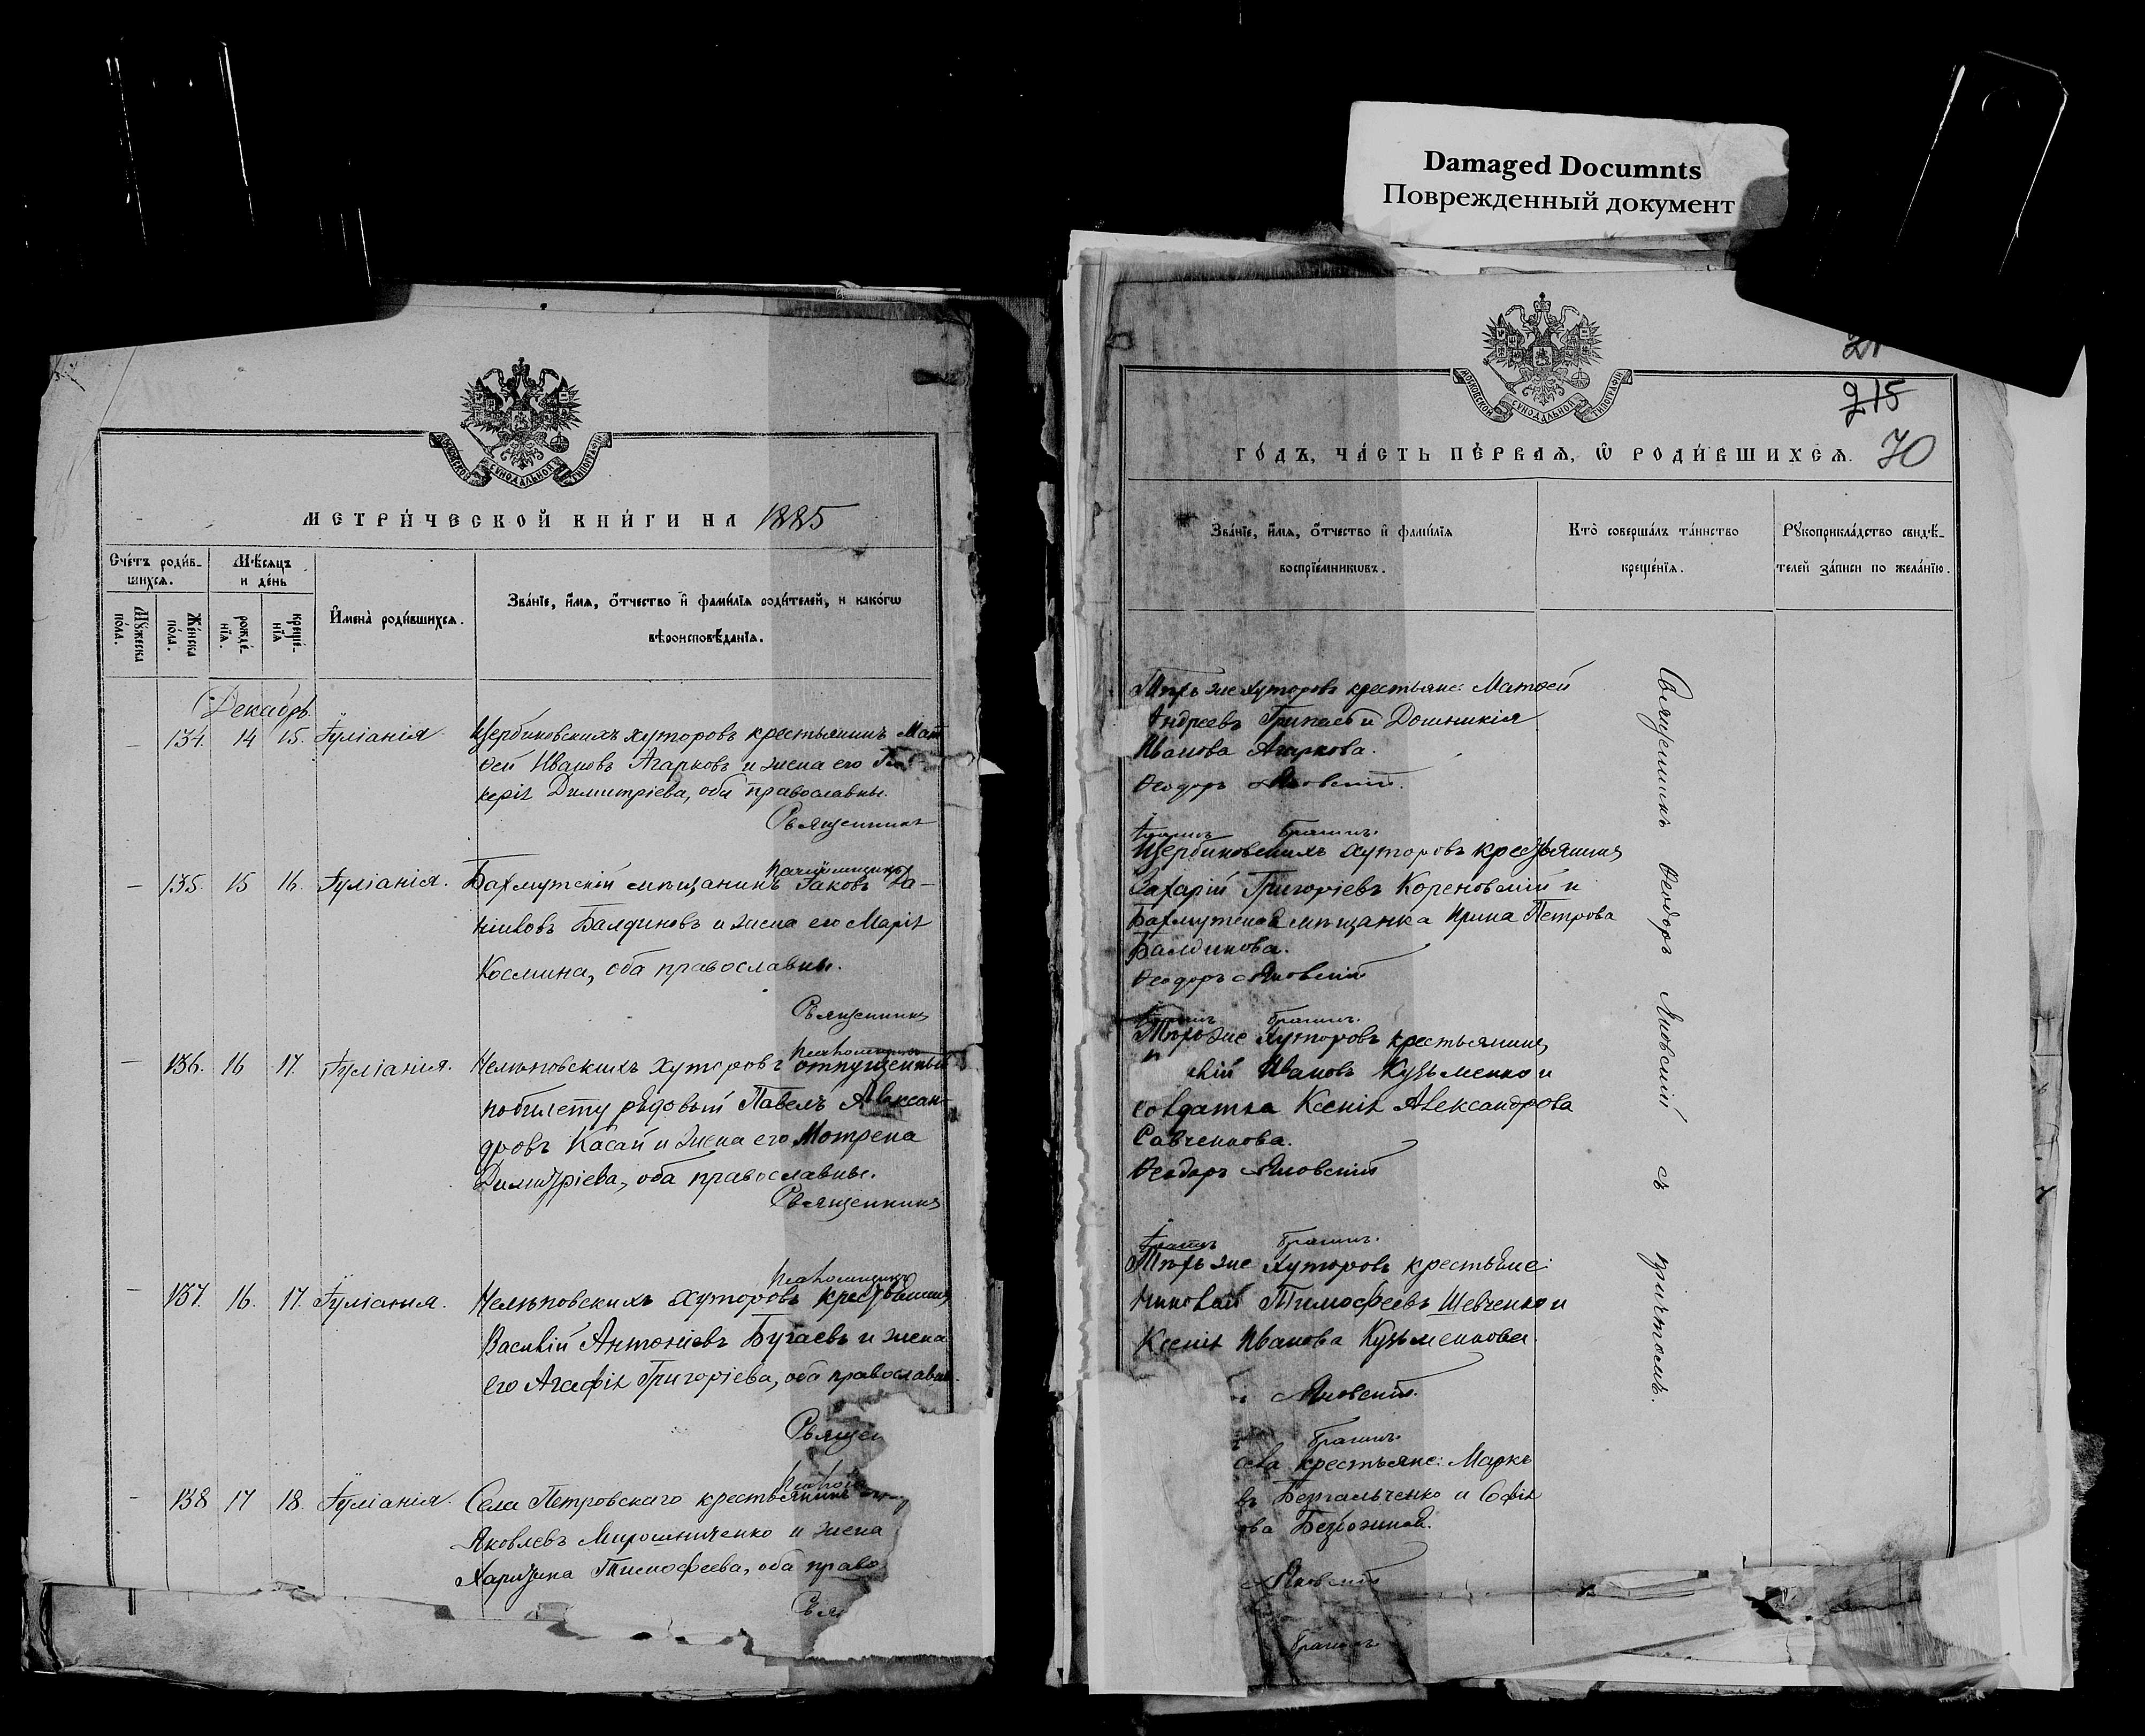 Damaged Documnts
Поврежденный документ
МОСКОВСКОЙ СѴНОДАЛЬНОЙ ТИПОГРАФІИ
МЕТРИ́ЧЕСКОЙ КНИ́ГИ НА 1885
Сче́тъ роди́в-
шихсѧ.
Мѣ́сѧцъ
и де́нь
Мꙋ́жеска по́ла.
Же́нска по́ла.
рожде́-
нїѧ.
креще́-
нїѧ
И҆мена̀ роди́вшихсѧ.
Зва́нїе, и҆́мѧ, о҆́тчество и҆ фами́лїѧ роди́телей, и како́гѡ
вѣроисповѣ́данїѧ.
Декабрь
134. 14 15. Іуліанія. Щербиновскихъ хуторовъ крестьянинъ Мат
ѳей Ивановъ Агарковъ и жена его
керія Димитріева, оба православны.
Священникъ
135. 15 16. Іуліанія. Бахмутскій мѣщанинъ Іаковъ Да-
ніиловъ Балдиновъ и жена его Марія
Космина, оба православны.
Священникъ
136. 16 17. Іуліанія. Нелѣповскихъ хуторовъ отпущенный
по билету рядовый Павелъ Алексан-
дровъ Касай и жена его Мотрена
Димитріева, оба православны.
Священникъ
137. 16. 17. Іуліанія. Нелѣповскихъ хуторовъ крестьянинъ
Василій Антоніевъ Бугаевъ и жена
его Агафія Григоріева, оба православны.
Священ
138 17 18. Іуліанія. Села Петровскаго крестьянинъ
Яковлевъ Мирошниченко и жена
Харитина Тимофеева, оба право
Свя
МОСКОВСКОЙ СѴНОДАЛЬНОЙ ТИПОГРАФІИ
215
70
ГО́ДЪ, ЧА́СТЬ ПЕ́РВАѦ, Ѡ҆ РОДИ́ВШИХСѦ.
Зва́нїе, и҆́мѧ, о҆́тчество и҆ фами́лїѧ
воспрїе́мникѡвъ.
Кто̀ соверша́лъ та́инство
креще́нїѧ.
Рꙋкоприкла́дство свидѣ́-
телей за́писи по жела́нїю.
Тѣхъ же хуторовъ крестьяне: Матѳей
Андреевъ и Домникія
Иванова Агаркова.
Ѳеодоръ Яновскій.
Щербиновскихъ хуторовъ крестьянинъ
Захарій Григоріевъ Кореновскій и
Бахмутская мѣщанка Ирина Петрова
Балдинова.
Ѳеодоръ Яновскій
Тѣхъ же хуторовъ крестьянинъ
кій Ивановъ Кузьменко и
солдатка Ксенія Александрова
Савченкова.
Ѳеодоръ Яновскій
Тѣхъ же хуторовъ крестьяне:
Николай Тимофеевъ Шевченко и
Ксенія Иванова Кузьменкова.
Яновскій.
крестьяне: Маркъ
въ и Софія
ова
Яновскій
Священникъ Ѳеодоръ Яновскій съ причтомъ.